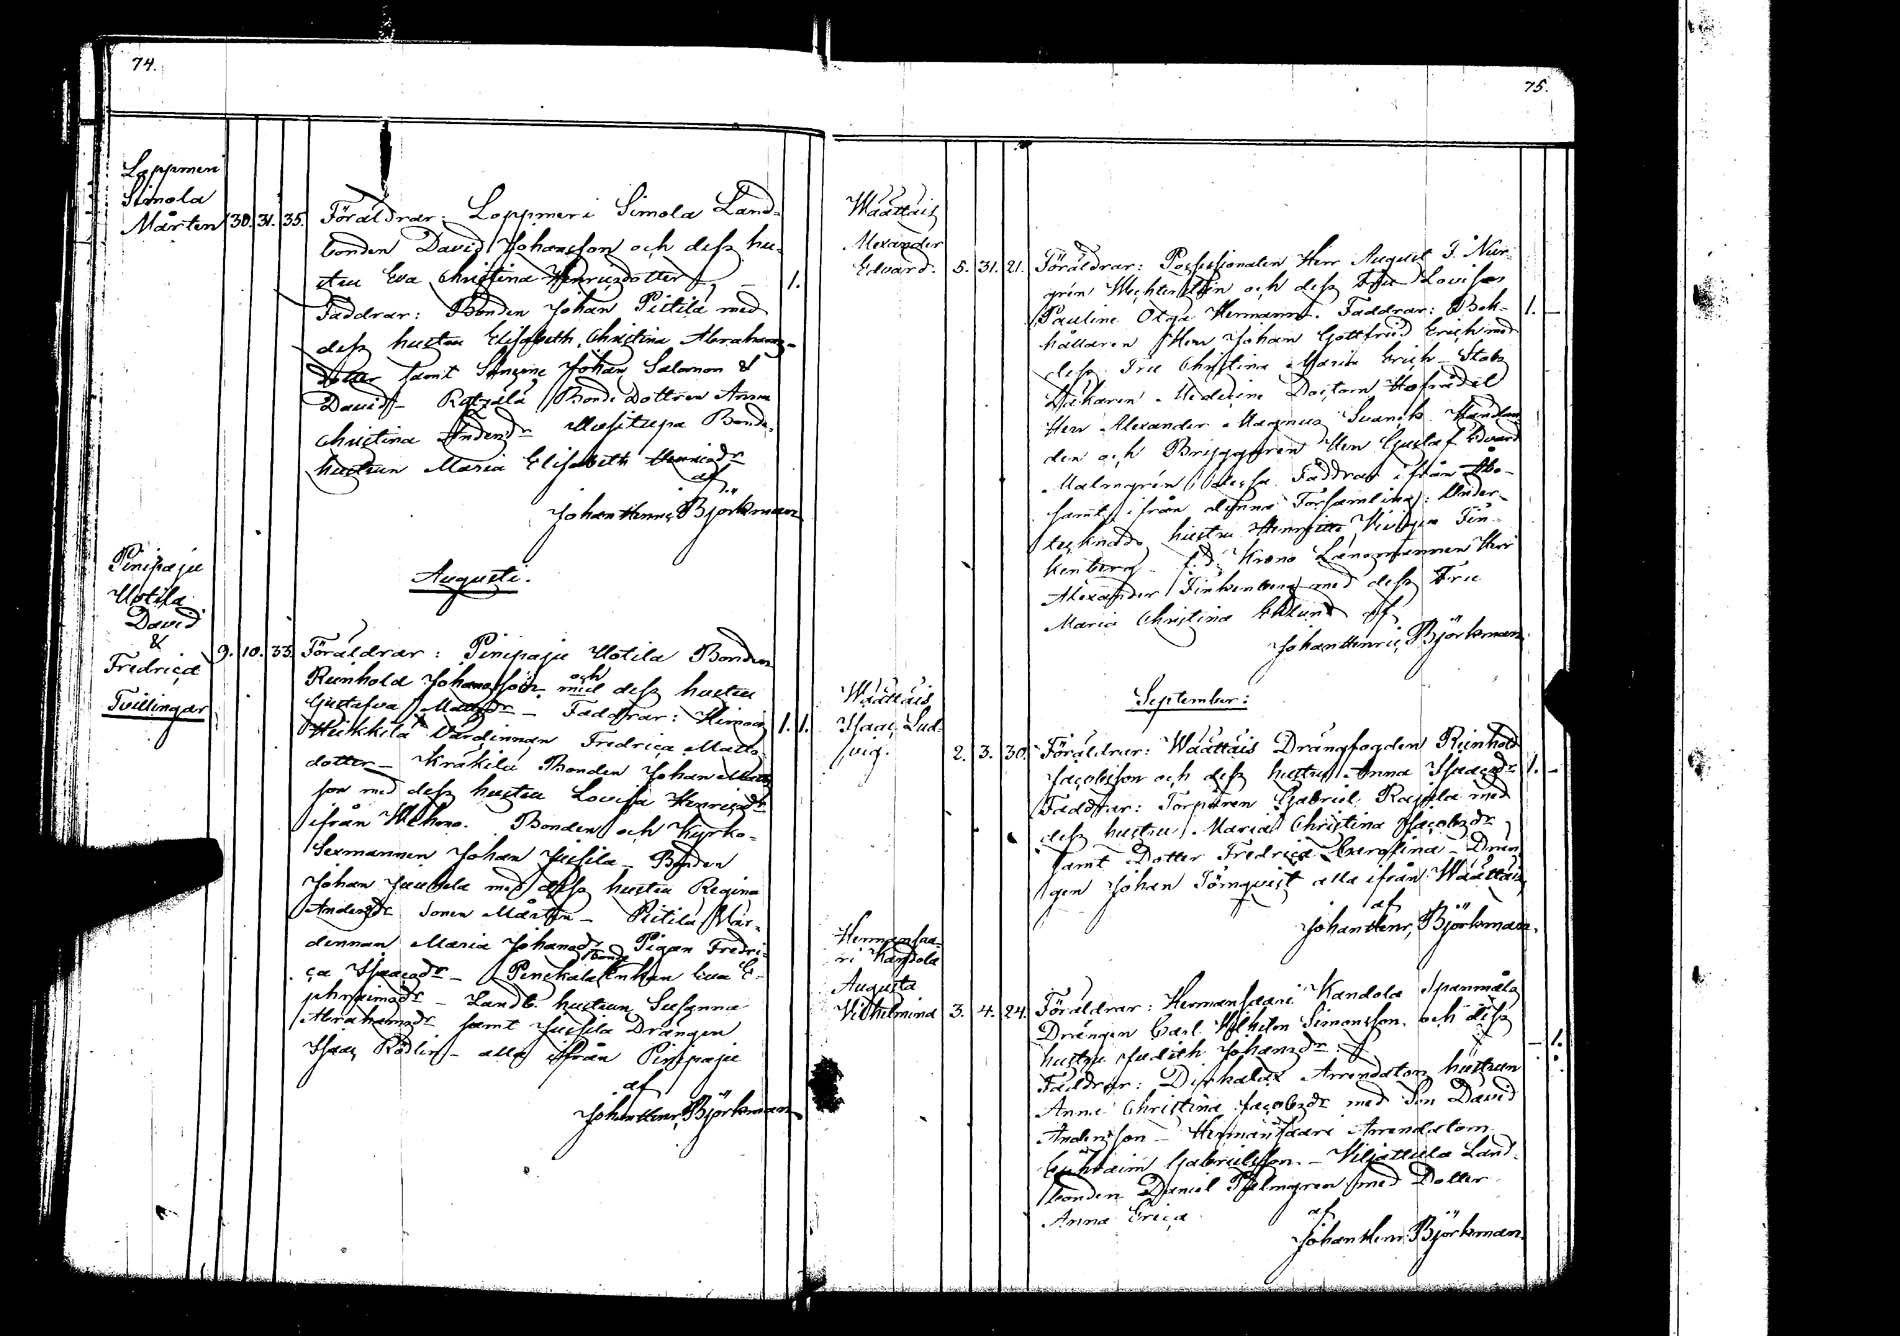 74.
Loppmeri
Simola
Mårten 30. 31. 35. Föräldrar: Loppmeri Simola Land-
bonden David Johansson och dess hu-
stru Eva Christina Henricsdotter – 1.
Faddrar: Bonden Johan Pietilä med
dess hustru Elisabeth Christina Abrahams-
dotter samt Sönerne Johan Salomon &
David – Bonde Dottren Anna
Christina Andersdr Bonde-
hustrun Maria Elisabeth Henricsdr
af
Johan Henric Björkman
Augusti.
Pinipaju
Uotila
David
&
Fredrica
Tvillingar
9. 10. 33. Föräldrar: Pinipaju Uotila Bonden
Reinhold Johansson och med dess hustru
Gustafva Mattsdr – Faddrar: 1. 1.
Heikkilä Värdinnan Fredrica Matts-
dotter – Kräkilä Bonden Johan Matts
son med dess hustru Lovisa Henricsdr
ifrån Wehmo. Bonden och Kyrko-
Sexmannen Johan Jussila – Bonden
Johan Jaakola med dess hustru Regina
Andersdr Sonen Mårten – Pietilä Vär-
dinnan Maria Johansdr Pigan Fredri-
ca Isaacsdr – Penckala Bonde Enkan Eva E-
phraimsdr – Landb. hustrun Susanna
Abrahamsdr samt Jussila Drängen
Isaac Rödlin – alla ifrån Pinipaju
af
Johan Henr. Björkman
75.
Wäättäis
Alexander
Edvard. 5. 31. 21. Föräldrar: Possessionaten Herr August J. Nor-
grén Wechter och dess Fru Lovisa
Pauline Olga Hermanna. Faddrar: Bok- 1. –
hållaren Herr Johan Gottfried Erich med
dess Fru Christina Maria Erich – Stabs
Läkaren Medicine Doctorn Hofrådet
Herr Alexander Magnus Svansk. Handlan
den och Bryggaren Herr Gustaf Edvard
Malmgrén dessa Faddrar ifrån Åbo –
samt ifrån denna Församling: Under-
tecknads hustru Henrietta Fin-
kenberg – f.d. Krono Länsmannen Herr
Alexander Finkenberg med dess Fru
Maria Christina Eklund af
Johan Henric Björkman
September:
Wäättäis
Isaac Lud-
vig. 2. 3. 30. Föräldrar: Wäättäis Drängfogden Reinhold
Jacobsson och dess hustru Anna Isaacsdr 1. –
Faddrar: Torparen Gabriel med
dess hustru Maria Christina Jacobsdr
samt Dotter Fredrica Carolina – Drän
gen Johan Törnqvist alla ifrån Wäättäis
af
Johan Henr. Björkman.
Hermansaa-
ri Kandola
Augusta
Vilhelmina 3. 4. 24. Föräldrar: Hermansaari Kandola Spanmåls
Drängen Carl Wilhelm Simonsson och dess
hustru Judith Johansdr – 1.
Faddrar: Arrendators hustrun
Anna Christina Jacobsdr med Son David
Andersson – Hermansaari Arrendatorn
Ephraim Gabrielsson – Viljattula Land-
bonden Daniel Palmgren med Dotter
Anna Erica
af
Johan Henr. Björkman.